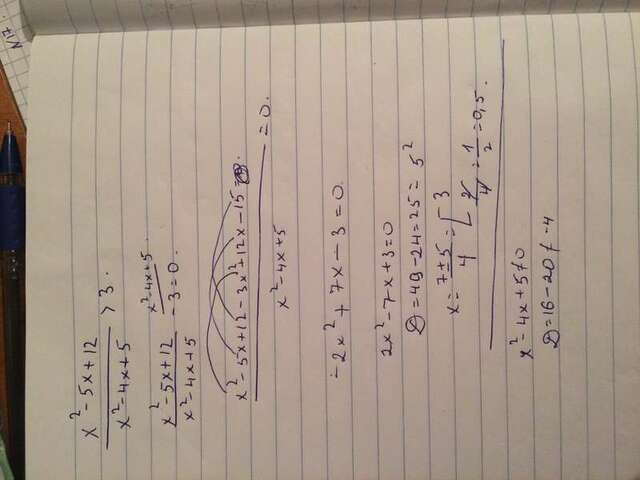 N17
x² - 5x + 12 / x² - 4x + 5 > 3.
x² - 5x + 12 / x² - 4x + 5 - 3 = 0. x² - 4x + 5
x² - 5x + 12 - 3x² + 12x - 15 = / x² - 4x + 5 = 0.
- 2x² + 7x - 3 = 0.
2x² - 7x + 3 = 0
D = 49 - 24 = 25 = 5²
x = 7 ± 5 / 4 = [ 3
2/4 = 1/2 = 0,5.
x² - 4x + 5 ≠ 0
D = 16 - 20 ≠ -4